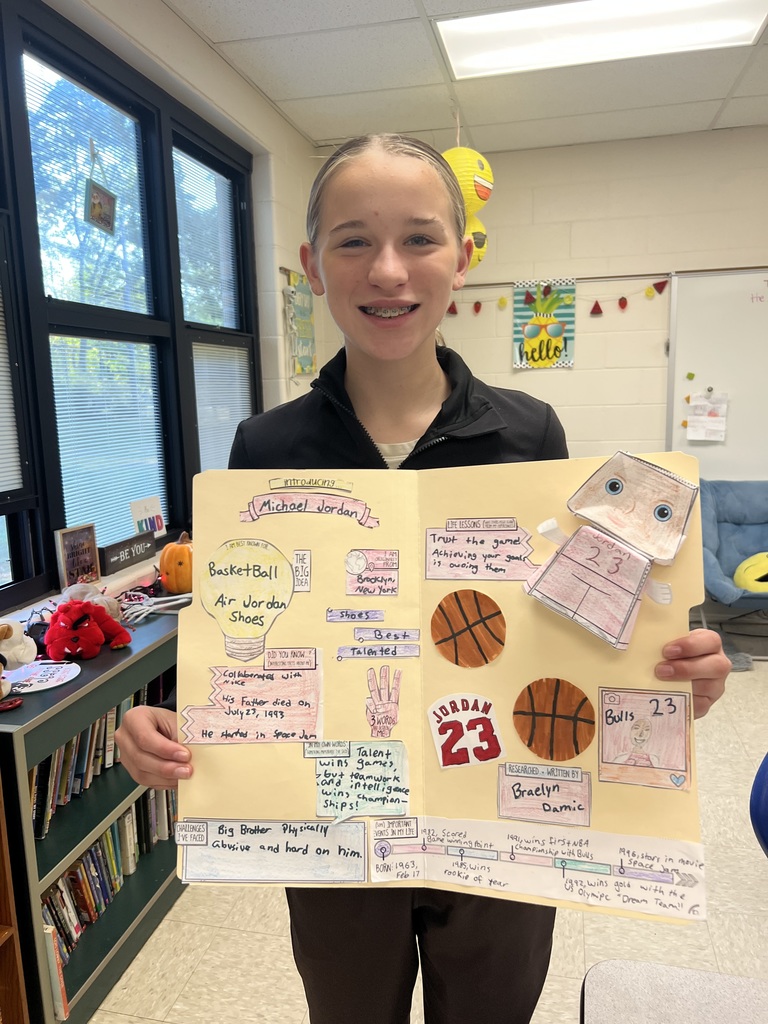 introducing
Michael Jordan
I AM BEST KNOWN FOR...
BasketBall
Air Jordan
Shoes
THE
BIG
IDEA
I AM
FROM
Brooklyn,
New York
shoes
Best
Talented
DID YOU KNOW...?
Collaborated with
Nike
His Father died on
July 23, 1993
He starred in Space Jam
3 WORDS
IN MY OWN WORDS
Talent
wins games,
but teamwork
and intelligence
wins champion-
ships!
CHALLENGES
I'VE FACED
Big Brother Physically
Abusive and hard on him.
LIFE LESSONS
Trust the game!
Achieving your goals
is owning them
Jordan
23
JORDAN
23
Bulls 23
RESEARCHED + WRITTEN BY
Braelyn
Damic
IMPORTANT
EVENTS IN MY LIFE
BORN: 1963,
Feb 17
1982, Scored
Game winning Point
1985, wins
rookie of year
1991, wins first NBA
Championship with Bulls
1992, wins gold with the
Olympic "Dream Team"
1996, stars in movie
Space Jam
hello!
BE YOU
KIND